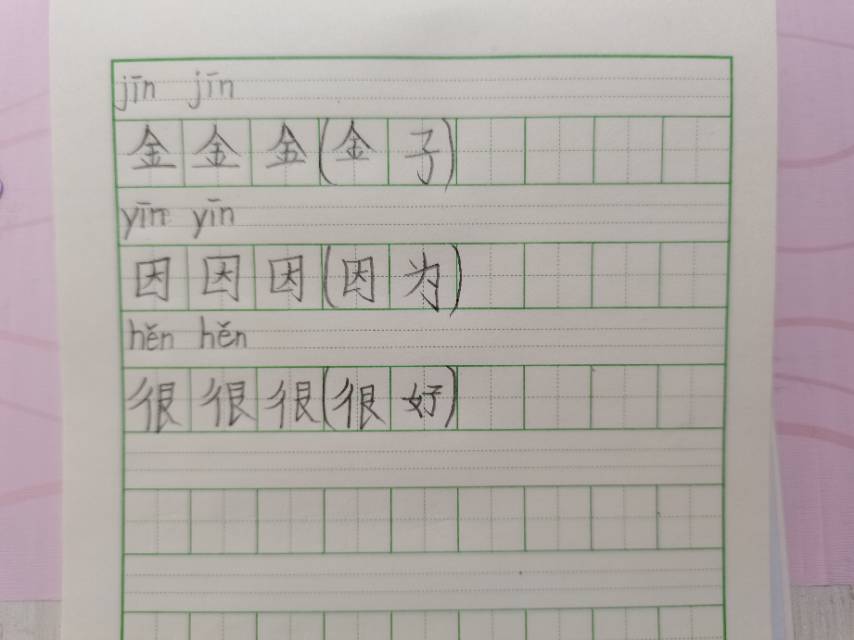 jīn jīn
金金金(金子)
yīn yīn
因因因(因为)
hěn hěn
很很很(很好)